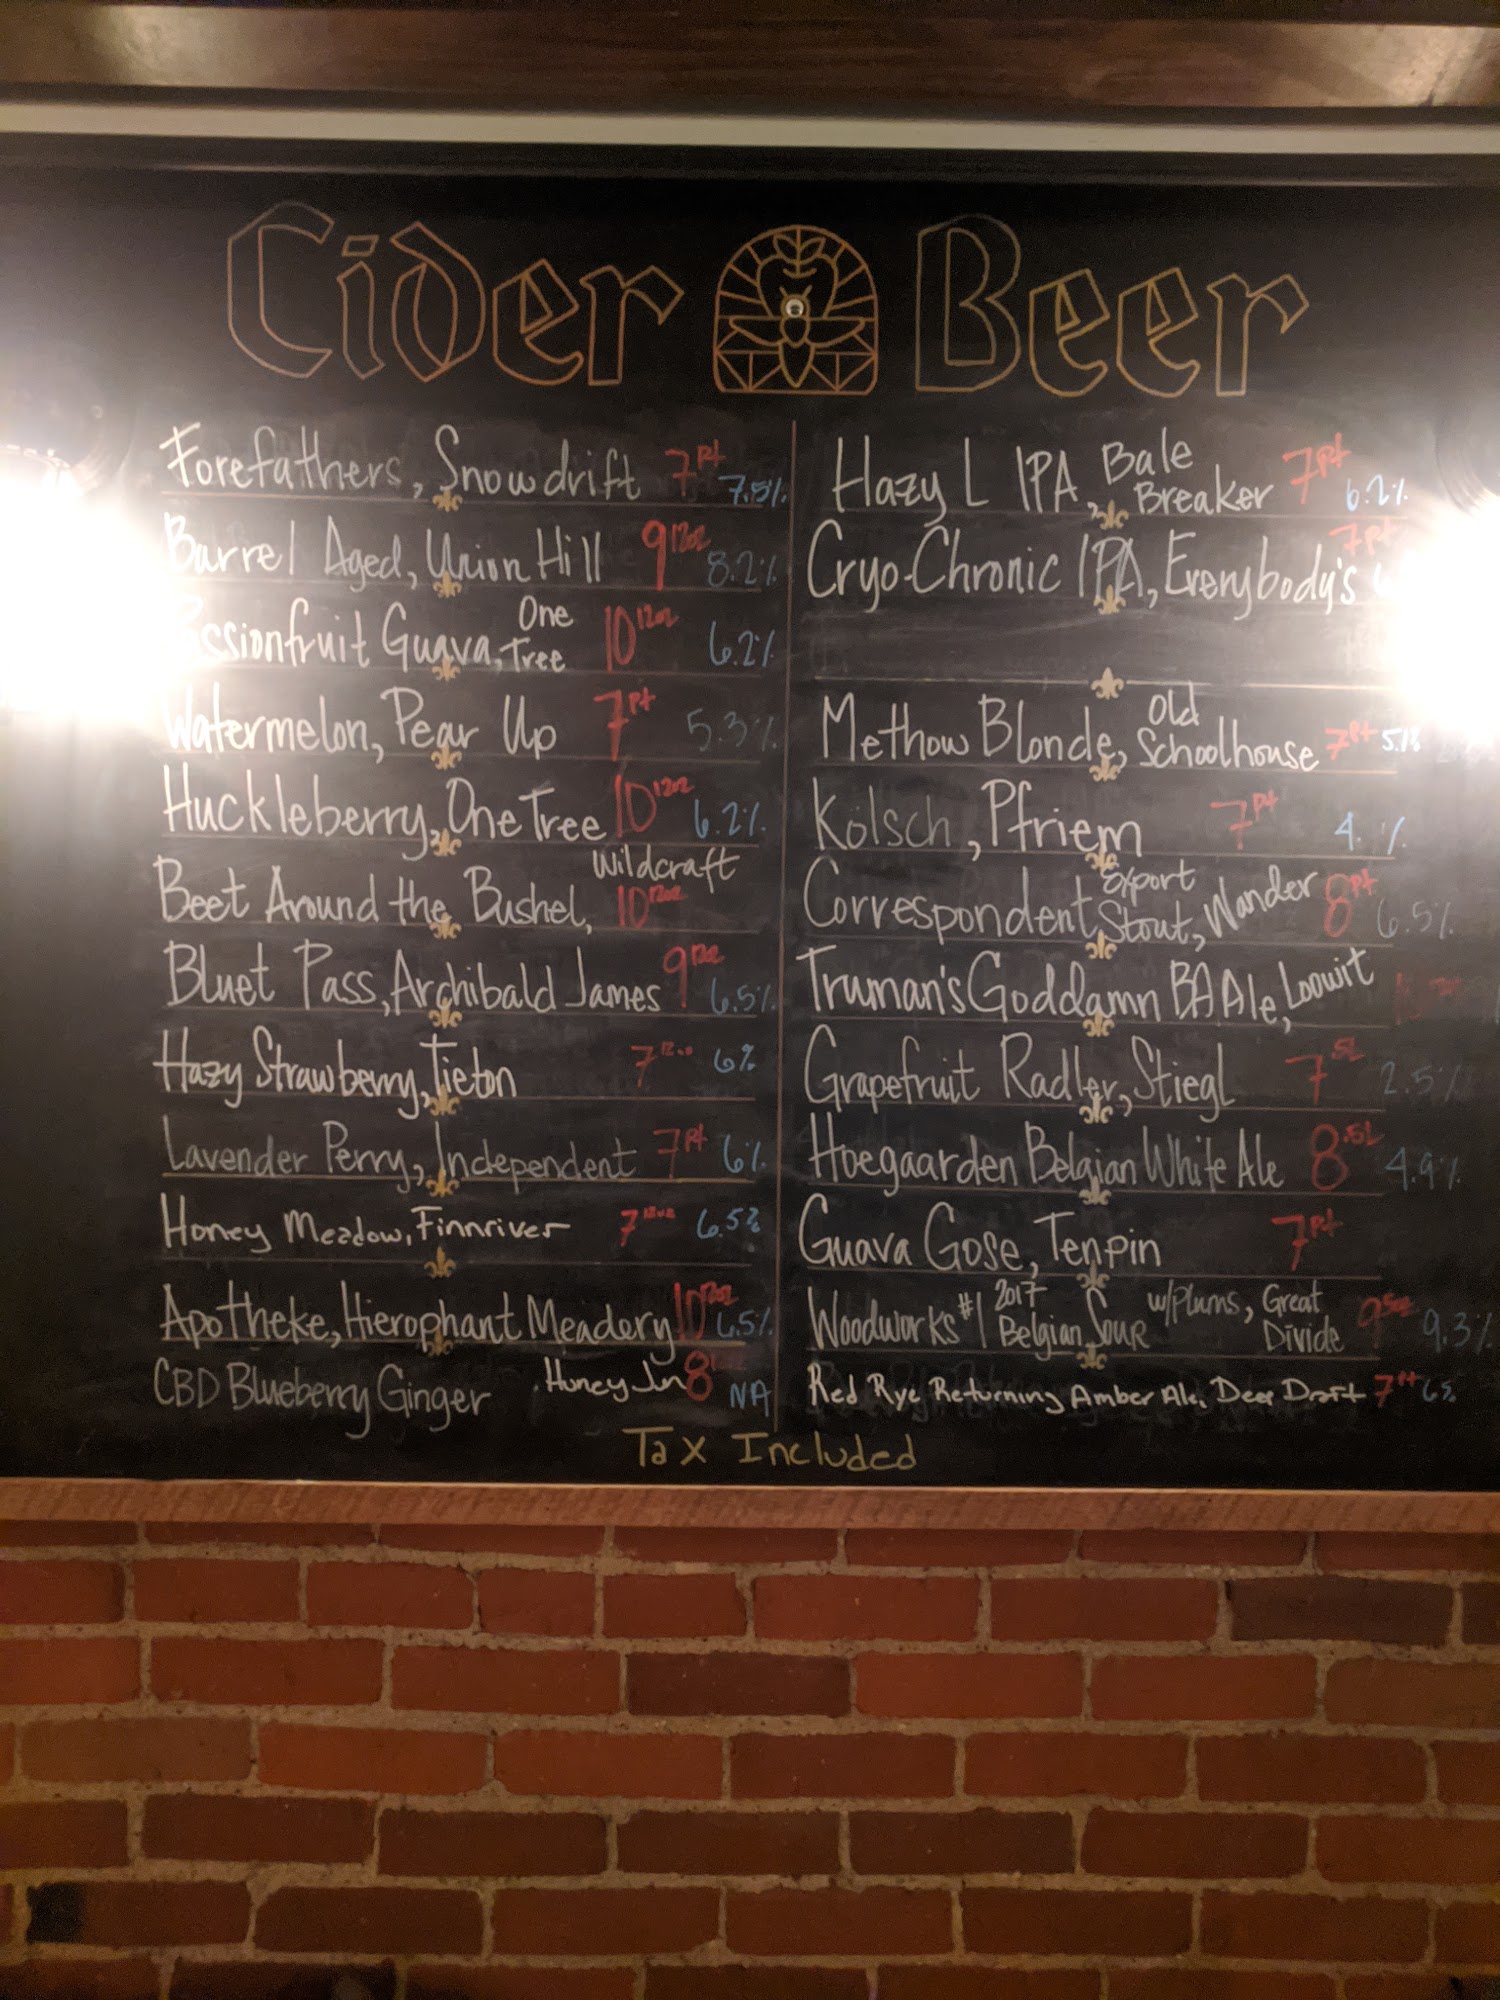 Cider Beer
Forefathers, Snowdrift 7pt 7.5%
Barrel Aged, Union Hill 9 12oz 8.2%
Guava, One Tree 10 12oz 6.2%
Watermelon, Pear Up 7pt 5.3%
Huckleberry, One Tree 10 12oz 6.2%
Beet Around the Bushel, Wildcraft 10 12oz
Bluet Pass, Archibald James 9 12oz 6.5%
Hazy Strawberry, Tieton 7 12oz 6%
Lavender Perry, Independent 7pt 6%
Honey Meadow, Finnriver 7 12oz 6.5%
Apotheke, Hierophant Meadery 10 12oz 6.5%
CBD Blueberry Ginger Honey Jun 8 NA
Hazy L IPA, Bale Breaker 7pt 6.2%
Cryo-Chronic IPA, Everybody's 7pt
Methow Blonde, Old Schoolhouse 7pt 5.1%
Kölsch, Pfriem 7pt 4. %
Correspondent Export Stout, Wander 8pt 6.5%
Truman's Goddamn BA Ale, Loowit
Grapefruit Radler, Stiegl 7 .5L 2.5%
Hoegaarden Belgian White Ale 8 .5L 4.9%
Guava Gose, Tenpin 7pt
Woodworks #1 2017 Belgian Sour w/Plums, Great Divide 9 5oz 9.3%
Red Rye Returning Amber Ale, Deep Draft 7pt 6%
Tax Included